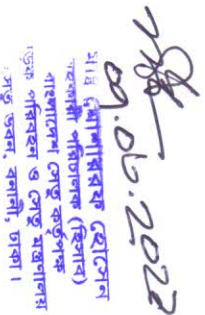 ০৭.০৬.২০২৩
মোঃ মোশাররফ হোসেন
সহকারী পরিচালক (হিসাব)
বাংলাদেশ সেতু কর্তৃপক্ষ
সড়ক পরিবহন ও সেতু মন্ত্রণালয়
সেতু ভবন, বনানী, ঢাকা।